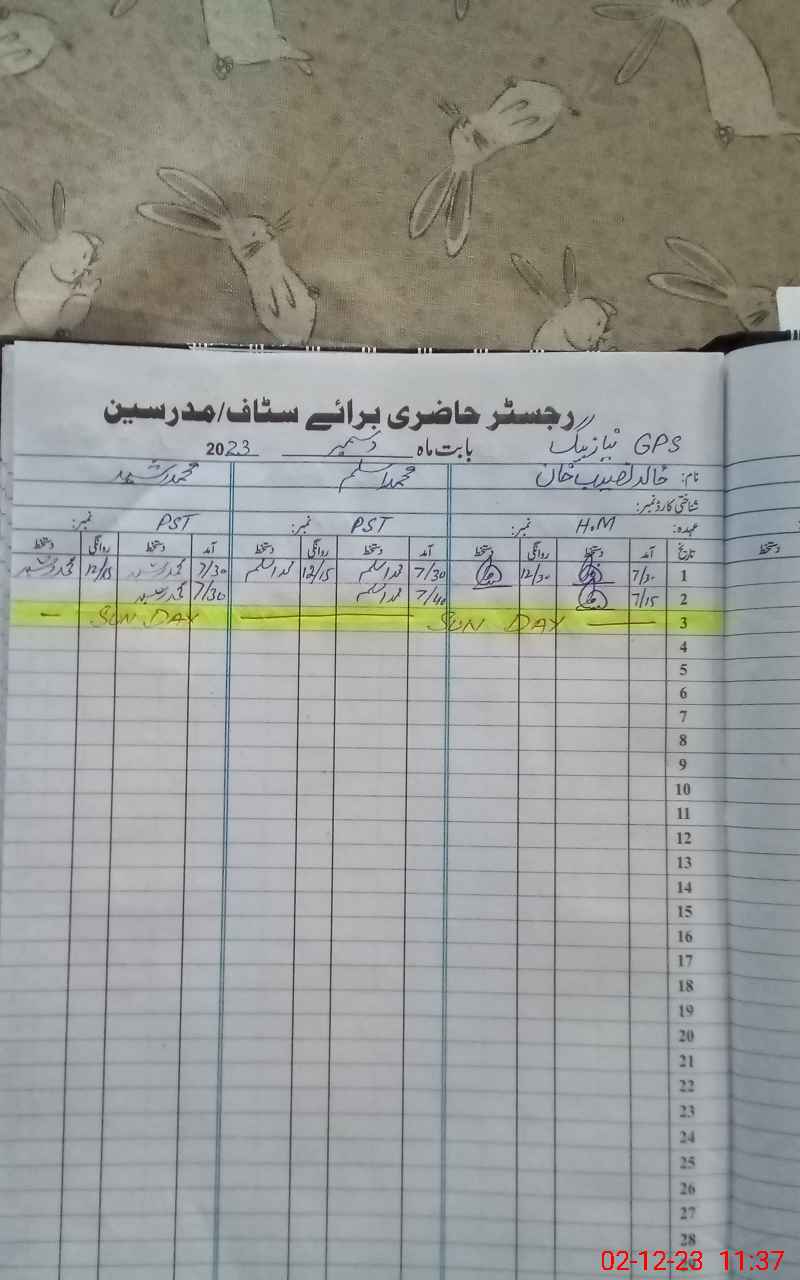 رجسٹر حاضری برائے سٹاف/مدرسین
GPS نیاز بیگ بابت ماہ دسمبر 2023
نام: خالد نصیب خان محمد اسلم محمد رشید
شناختی کارڈ نمبر:
عہدہ: H.M نمبر: PST نمبر: PST نمبر:
تاریخ آمد دستخط روانگی دستخط آمد دستخط روانگی دستخط آمد دستخط روانگی دستخط
1 7/30 12/30 7/30 محمد اسلم 12/15 محمد اسلم 7/30 محمد رشید 12/15 محمد رشید
2 7/15 7/40 محمد اسلم 7/30 محمد رشید
3 SUN DAY SUN DAY
4
5
6
7
8
9
10
11
12
13
14
15
16
17
18
19
20
21
22
23
24
25
26
27
28
02-12-23 11:37